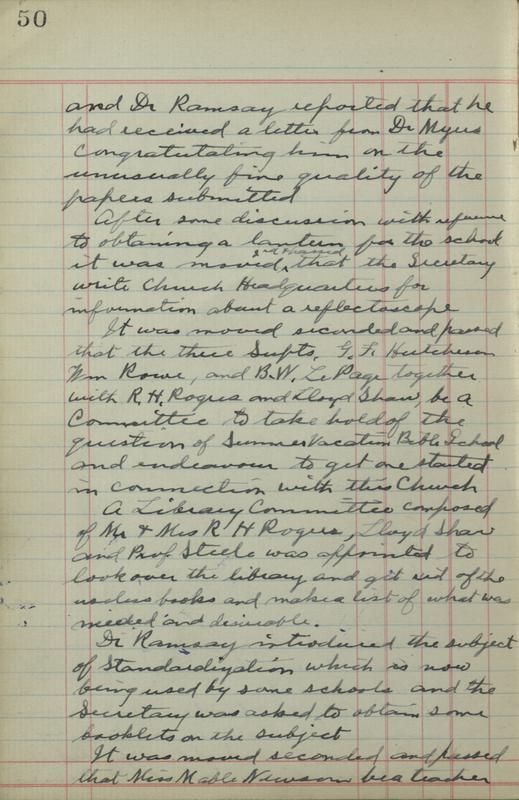 50
and Dr Ramsay reported that he
had received a letter from Dr Myers
congratulating him on the
unusually fine quality of the
papers submitted
After some discussion with reference
to obtaining a lantern for the school
it was moved and passed that the Secretary
write Church Headquarters for
information about a reflectoscope
It was moved seconded and passed
that the three Supts, G. F. Hutcheson
Wm Rowe, and B. W. LePage together
with R. H. Rogers and Lloyd Shaw, be a
Committee to take hold of the
question of Summer Vacation Bible School
and endeavour to get one started
in connection with this Church
A Library Committee composed
of Mr & Mrs R H Rogers, Lloyd Shaw
and Prof Steele was appointed to
look over the library and get rid of the
useless books and make a list of what was
needed and desirable.
Dr Ramsay introduced the subject
of Standardization which is now
being used by some schools and the
Secretary was asked to obtain some
booklets on the subject
It was moved seconded and passed
that Miss Mable Newsom be a teacher